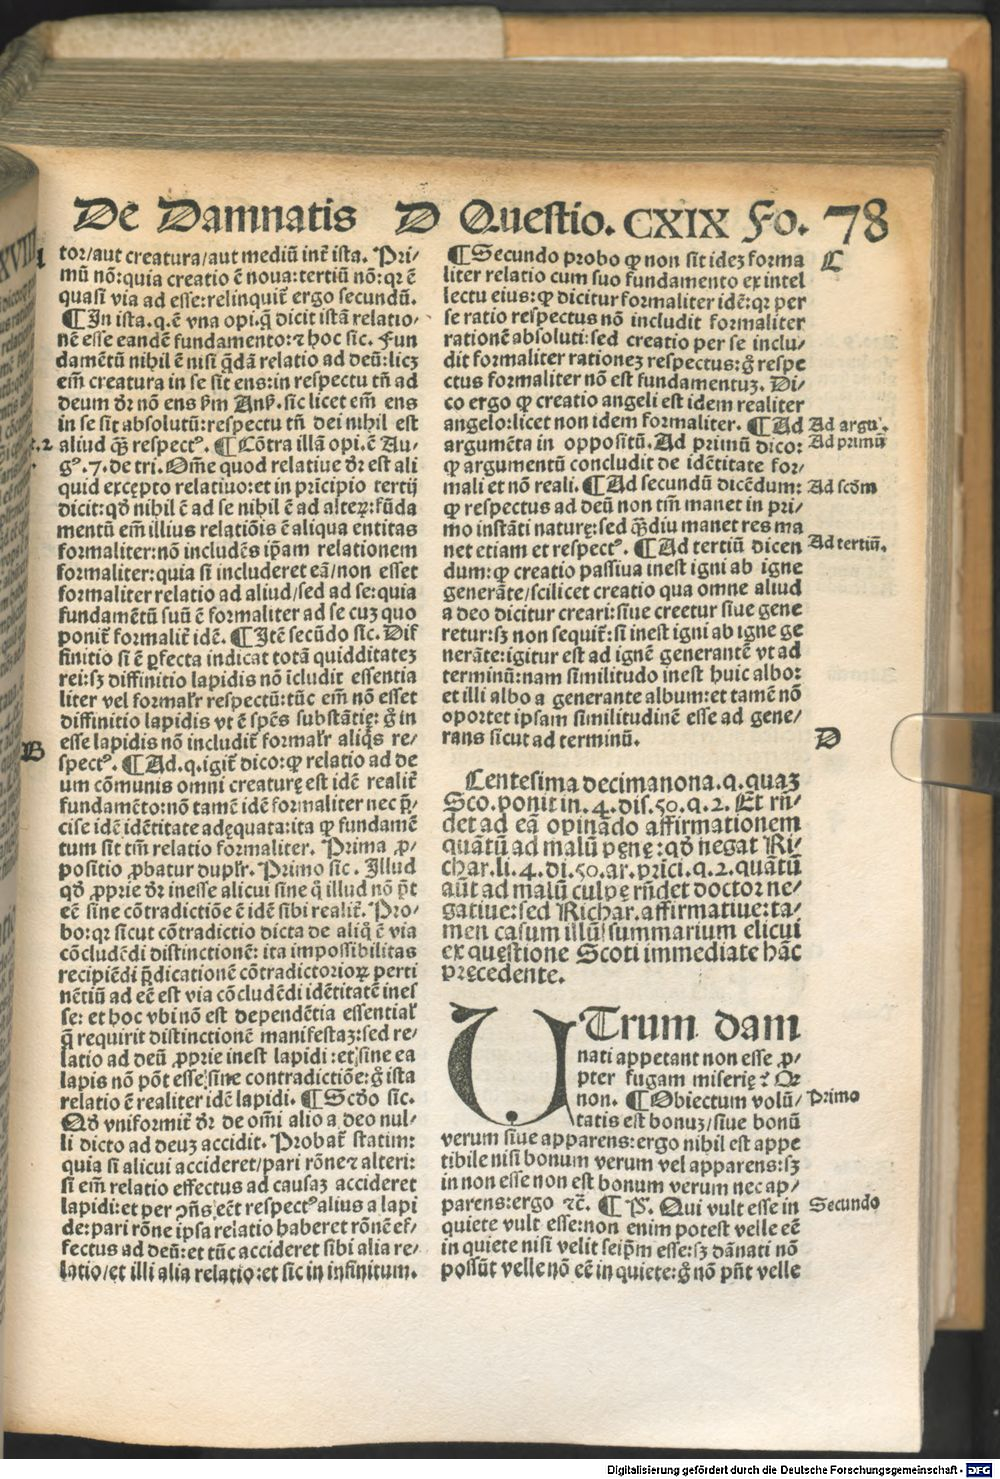 De Damnatis D Questio. CXIX Fo. 78
tor/aut creatura/aut mediū int̄ ista. Pri-
mū nō: quia creatio ē noua: tertiū nō: qꝛ ē
quasi via ad esse: relinquit̄ ergo secundū.
¶In ista. q. ē vna opi. q̄ dicit istā relatio-
nē esse eandē fundamento: ⁊ hoc sic. Fun
damētū nihil ē nisi q̄dā relatio ad deū: licꝫ
em̄ creatura in se sit ens: in respectu tn̄ ad
deum dr̄ nō ens ẜm Anẜ. sic licet em̄ ens
in se sit absolutū: respectu tn̄ dei nihil est
aliud qꝫ̄ respectꝰ. ¶Cōtra illā opi. ē Au-
gꝰ. 7. de tri. Om̄e quod relatiue dr̄ est ali
quid excepto relatiuo: et in pricipio tertij
dicit: qđ nihil ē ad se nihil ē ad alteꝝ: fūda
mentū em̄ illius relatiōis ē aliqua entitas
formaliter: nō includēs ip̄am relationem
formaliter: quia si includeret eā/non esset
formaliter relatio ad aliud/sed ad se: quia
fundamētū suū ē formaliter ad se cuꝫ quo
ponit̄ formalit̄ idē. ¶Itē secūdo sic. Dif
finitio si ē ꝑfecta indicat totā quidditateꝫ
rei: sꝫ diffinitio lapidis nō īcludit essentia
liter vel formalr̄ respectū: tūc em̄ nō esset
diffinitio lapidis vt ē spēs substātię: g̊ in
esse lapidis nō includit̄ formalr̄ aliq̄s re-
B
spectꝰ. ¶Ad. q. igit̄ dico: ꝙ relatio ad de
um cōmunis omni creaturę est idē realit̄
fundamēto: nō tamē idē formaliter nec p̄-
cise idē idētitate adęquata: ita ꝙ fundamē
tum sit tm̄ relatio formaliter. Prima ꝓ-
positio ꝓbatur duplr̄. Primo sic. Illud
qđ ꝓprie dr̄ inesse alicui sine q̄ illud nō pōt
eē sine cōtradictiōe ē idē sibi realit̄. Pro-
bo: qꝛ sicut cōtradictio dicta de aliq̄ ē via
cōcludēdi distinctionē: ita impossibilitas
recipiēdi p̄dicationē cōtradictorioꝝ perti
nētiū ad eē est via cōcludēdi idētitatē ines
se: et hoc vbi nō est dependētia essentialꝭ
q̄ requirit distinctionē manifestaꝫ: sed re-
latio ad deū ꝓprie inest lapidi: et sine ea
lapis nō pōt esse sine contradictiōe: g̊ ista
relatio ē realiter idē lapidi. ¶Scđo sic.
Qđ vniformit̄ dr̄ de om̄i alio a deo nul-
li dicto ad deuꝫ accidit. Probat̄ statim:
quia si alicui accideret/pari rōne ⁊ alteri:
si em̄ relatio effectus ad causaꝫ accideret
lapidi: et per ↄn̄s eēt respectꝰ alius a lapi
de: pari rōne ipsa relatio haberet rōnē ef-
fectus ad deū: et tūc accideret sibi alia re-
latio/et illi alia relatio: et sic in infinitum.
C
¶Secundo probo ꝙ non sit ideꝫ forma
liter relatio cum suo fundamento ex intel
lectu eius: ꝙ dicitur formaliter idē: qꝛ per
se ratio respectus nō includit formaliter
rationē absoluti: sed creatio per se inclu-
dit formaliter rationeꝫ respectus: g̊ respe
ctus formaliter nō est fundamentuꝫ. Di-
co ergo ꝙ creatio angeli est idem realiter
angelo: licet non idem formaliter. ¶Ad
Ad arguꝭ.
argumēta in oppositū. Ad primū dico:
Ad primū
ꝙ argumētū concludit de idētitate for-
mali et nō reali. ¶Ad secundū dicēdum:
Ad scđm
ꝙ respectus ad deū non tm̄ manet in pri-
mo instāti naturę: sed qꝫ̄diu manet res ma
net etiam et respectꝰ. ¶Ad tertiū dicen
Ad tertiū.
dum: ꝙ creatio passiua inest igni ab igne
generāte/scilicet creatio qua omne aliud
a deo dicitur creari: siue creetur siue gene
retur: sꝫ non sequit̄: si inest igni ab igne ge
nerāte: igitur est ad ignē generantē vt ad
terminū: nam similitudo inest huic albo:
et illi albo a generante album: et tamē nō
oportet ipsam similitudinē esse ad gene-
rans sicut ad terminū.
D
Centesima decimanona. q. quaꝫ
Sco. ponit in. 4. dis. 50. q. 2. Et rn̄-
det ad eā opinādo affirmationem
quātū ad malū pęnę: qđ negat Ri-
char. li. 4. di. 50. ar. prici. q. 2. quātū
aūt ad malū culpę rn̄det doctor ne-
gatiue: sed Richar. affirmatiue: ta-
men casum illū summarium elicui
ex questione Scoti immediate hāc
pręcedente.
UTrum dam
nati appetant non esse ꝓ-
pter fugam miserię ⁊ Qꝛ
non. ¶Obiectum volū-
Primo
tatis est bonuꝫ/siue bonū
verum siue apparens: ergo nihil est appe
tibile nisi bonum verum vel apparens: sꝫ
in non esse non est bonum verum nec ap-
parens: ergo ⁊c̄. ¶P̄. Qui vult esse in
Secundo
quiete vult esse: non enim potest velle eē
in quiete nisi velit seip̄m esse: sꝫ dānati nō
possūt velle nō eē in quiete: g̊ nō pn̄t velle
Digitalisierung gefördert durch die Deutsche Forschungsgemeinschaft - DFG